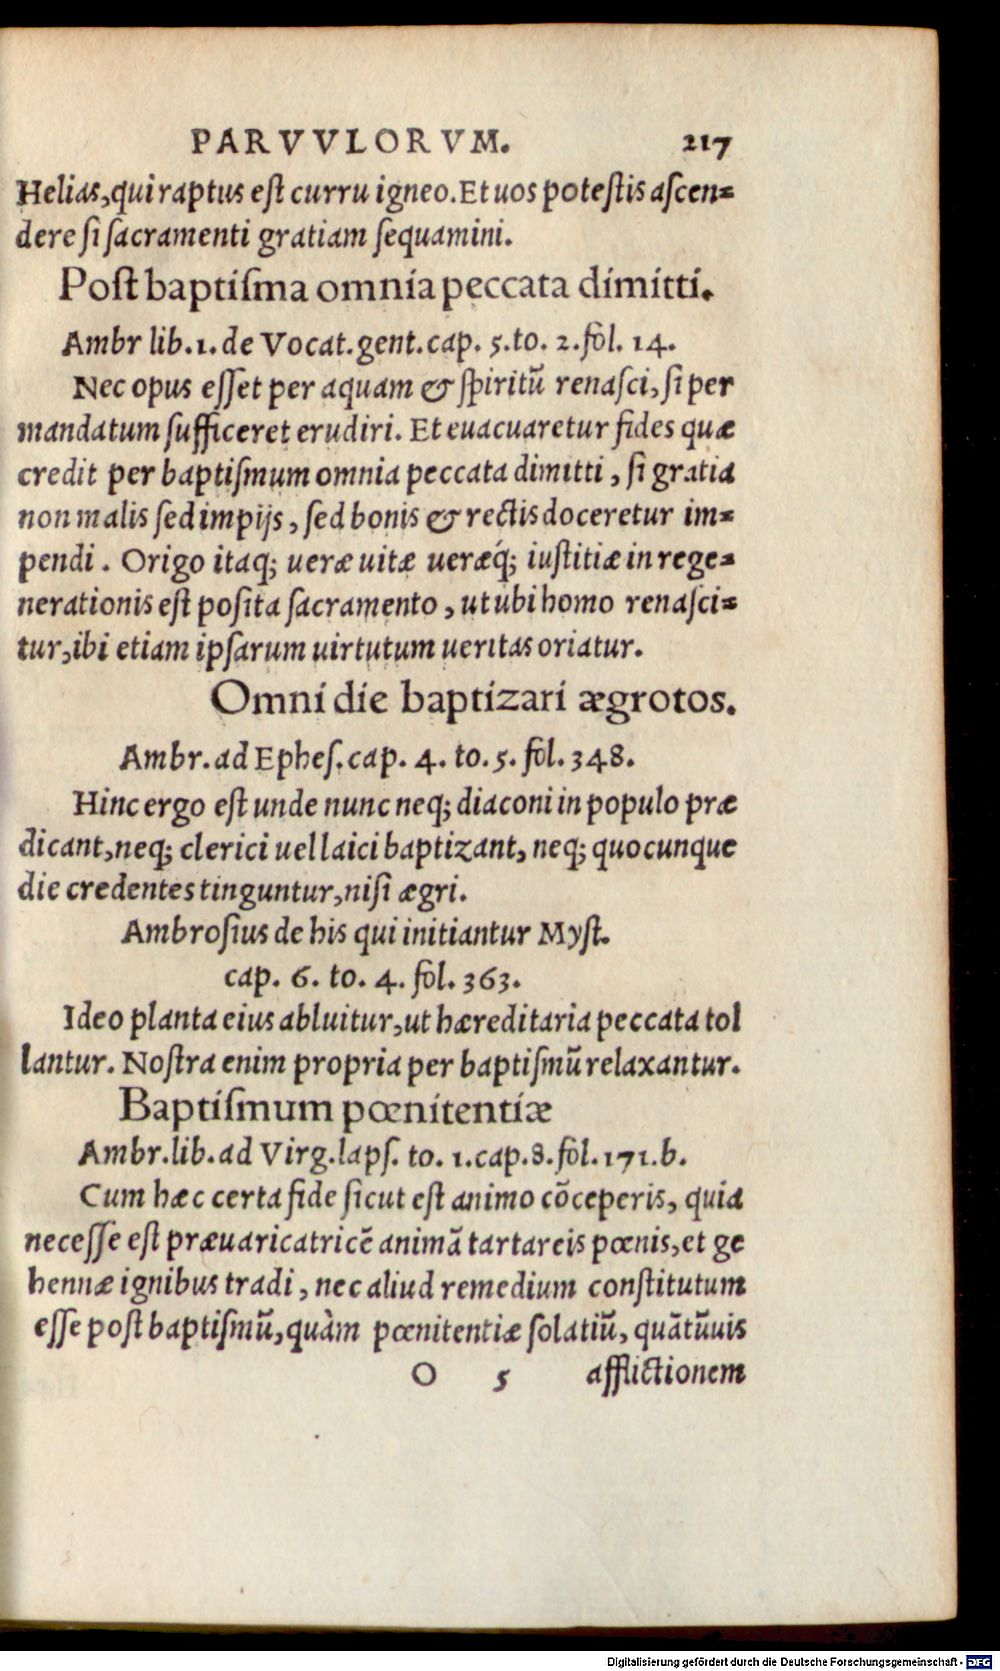 PARVVLORVM. 217
Helias, qui raptus est curru igneo. Et uos potestis ascen=
dere si sacramenti gratiam sequamini.
Post baptisma omnia peccata dimitti.
Ambr lib. 1. de Vocat. gent. cap. 5. to. 2. fol. 14.
Nec opus esset per aquam & spiritũ renasci, si per
mandatum sufficeret erudiri. Et euacuaretur fides quæ
credit per baptismum omnia peccata dimitti, si gratia
non malis sed impijs, sed bonis & rectis doceretur im=
pendi. Origo itaq; ueræ uitæ ueræq́; iustitiæ in rege=
nerationis est posita sacramento, ut ubi homo renasci=
tur, ibi etiam ipsarum uirtutum ueritas oriatur.
Omni die baptizari ægrotos.
Ambr. ad Ephes. cap. 4. to. 5. fol. 348.
Hinc ergo est unde nunc neq; diaconi in populo præ
dicant, neq; clerici uel laici baptizant, neq; quocunque
die credentes tinguntur, nisi ægri.
Ambrosius de his qui initiantur Myst.
cap. 6. to. 4. fol. 363.
Ideo planta eius abluitur, ut hæreditaria peccata tol
lantur. Nostra enim propria per baptismũ relaxantur.
Baptismum pœnitentiæ
Ambr. lib. ad Virg. laps. to. 1. cap. 8. fol. 171. b.
Cum hæc certa fide sicut est animo cõceperis, quia
necesse est præuaricatricẽ animã tartareis pœnis, et ge
hennæ ignibus tradi, nec aliud remedium constitutum
esse post baptismũ, quàm pœnitentiæ solatiũ, quãtũuis
O 5 afflictionem
Digitalisierung gefördert durch die Deutsche Forschungsgemeinschaft - DFG